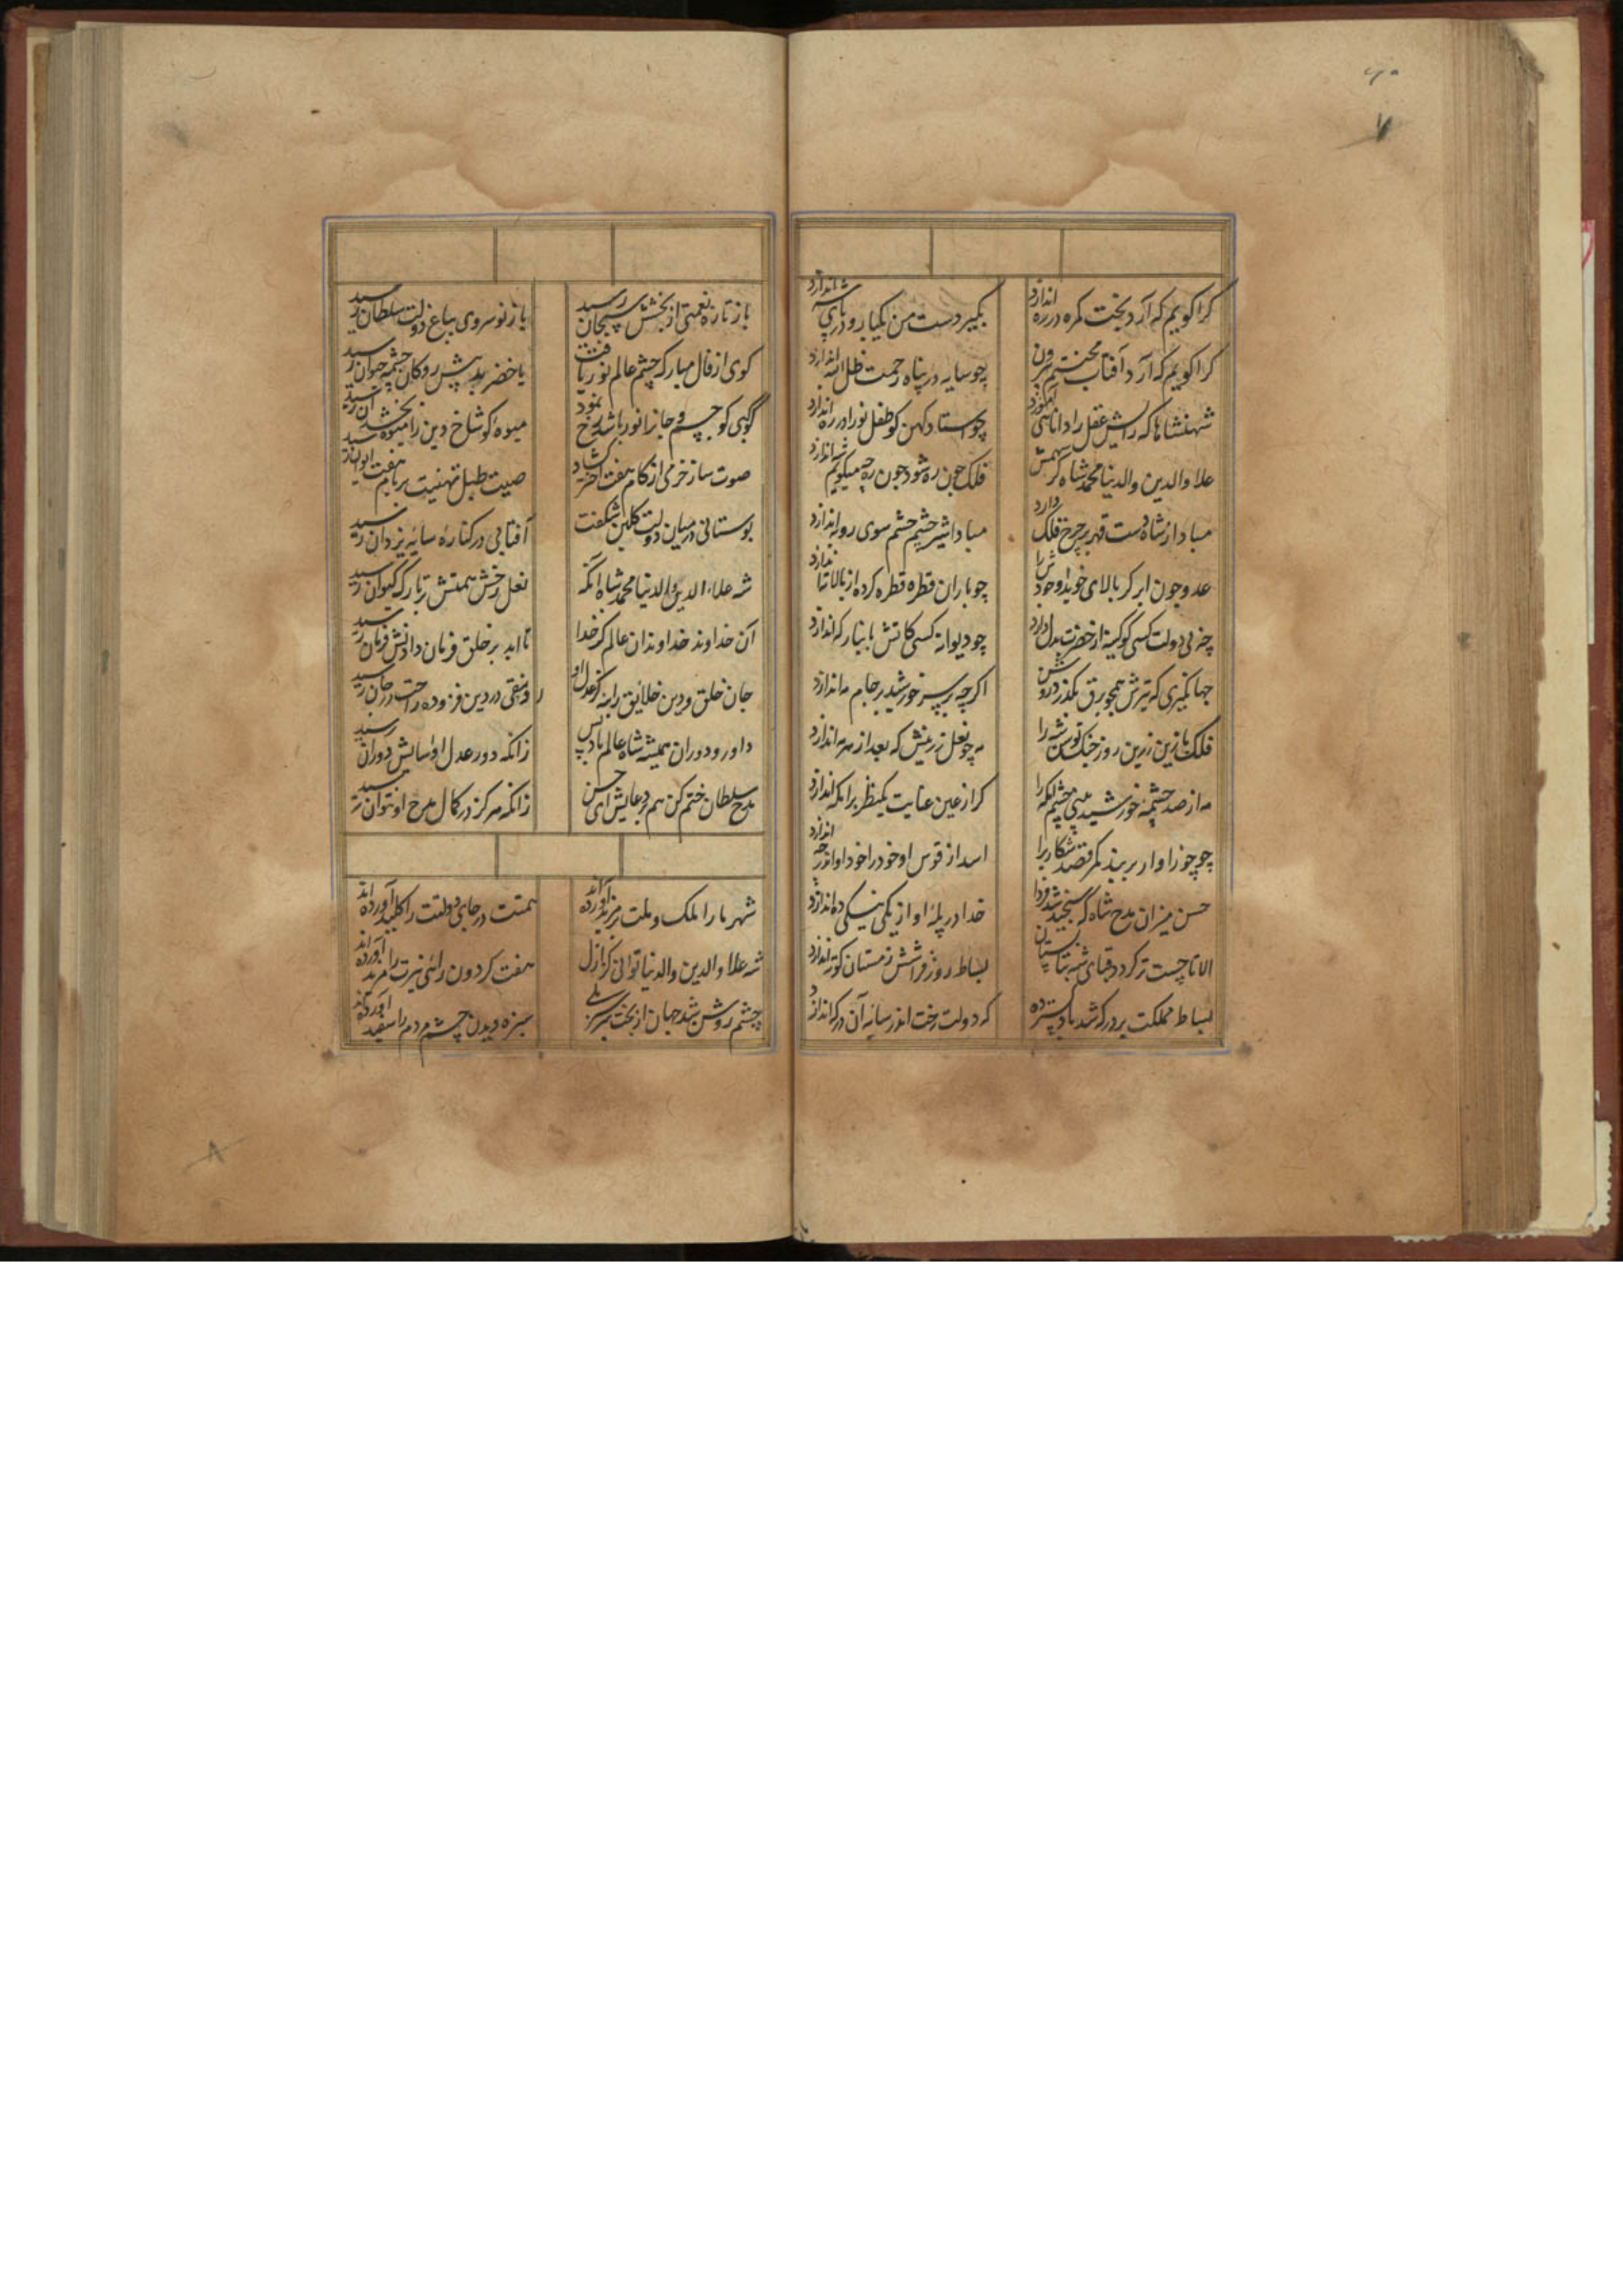 ۷
کرا کویم که آرد بخت کمره در ره اندازد
بکیرد دست من یکبار و در پای شه اندازد
کرا کویم که آرد آفتاب محنتم برون
چو سایه در پناه رحمت ظل الله اندازد
شهنشاها که رایش عقل را دانا
چو استاد کهن کو طفل نو را در ره اندازد
علاء والدین والدنیا محمد شاه کز سهمش
فلک چون ره شود چون ره چه میکویم اندازد
مبادا از شاه دست قهر بر چرخ فلک دارد
مبادا شیر خشم چشم سوی روبه اندازد
عدو چون ابر کر بالای خوید وجودش را
چو باران قطره قطره کرده از بالا
چه بی دولت کسی کو کینه از حضرت بدل دارد
چو دیوانه کسی کاتش با نبار که اندازد
جهانکیری که تیرش همچو برق بکذرد روشن
اکر چه بر سپر خورشید بر جام مه اندازد
فلک با زین زرین روز جنک توسن شه را
مه چو نعل زرینش که بعد از مه اندازد
مه از صد چشمه خورشید بینی چشم
کر از عین عنایت یکنظر بر انکه اندازد
چو جوزا وار بر بندد کمر قصد شکار را
اسد از قوس او خود را خود او اندر چه اندازد
حسن میزان مدح شاه که سنجید شد فردا
خدا در پله او از یکی نیکی ده اندازد
الا تا چست تر کردد قبای شب تابستان
بساط روز فراشش زمستان کوته اندازد
بساط مملکت بر در که شه باد کسترده
که دولت رخت اندر سایه آن در که اندازد
باز تازه نعمتی از بخشش سبحان رسید
باز نو سروی بباغ دولت سلطان رسید
کوی از فال مبارک چشم عالم نور یافت
یا خضر بد پیش رو کان چشمه حیوان رسید
کوکبی کو جسم و جانرا نور باشد رخ نمود
میوه کو شاخ دین را میوه بخشد آن رسید
صوت ساز خرمی از کام هفت اختر کشاد
صیت طبل تهنیت بر بام هفت ایوان رسید
بوستانی در میان دولت کلبن شکفت
آفتابی در کناره سایه یزدان رسید
شه علاء الدین والدنیا محمد شاه انکه
نعل رخش همتش بر تارک کیوان رسید
آن خداوند خداوندان عالم کز خدا
تا ابد بر خلق فرمان دادنش فرمان رسید
جان خلق و دین خلایق را به کز عدل او
رونقی در دین فزوده راحت در جان رسید
داور دوران همیشه شاه عالم باد پس
زانکه دور عدل او آسایش دوران رسید
مدح سلطان ختم کن هم بر دعایش ای حسن
زانکه هرکز در کمال مدح او نتوان رسید
شهریارا ملک و ملت بر مزید آورده اند
همتت در جای دولتت را کلید آورده اند
شه علاء والدین والدنیا توانی کز ازل
هفت کردون رای نیرت را مرید آورده اند
چشم روشن شد جهان از بخت سر سبزت بلی
سبزه دیدن چشم مردم را سفید آورده اند
۸